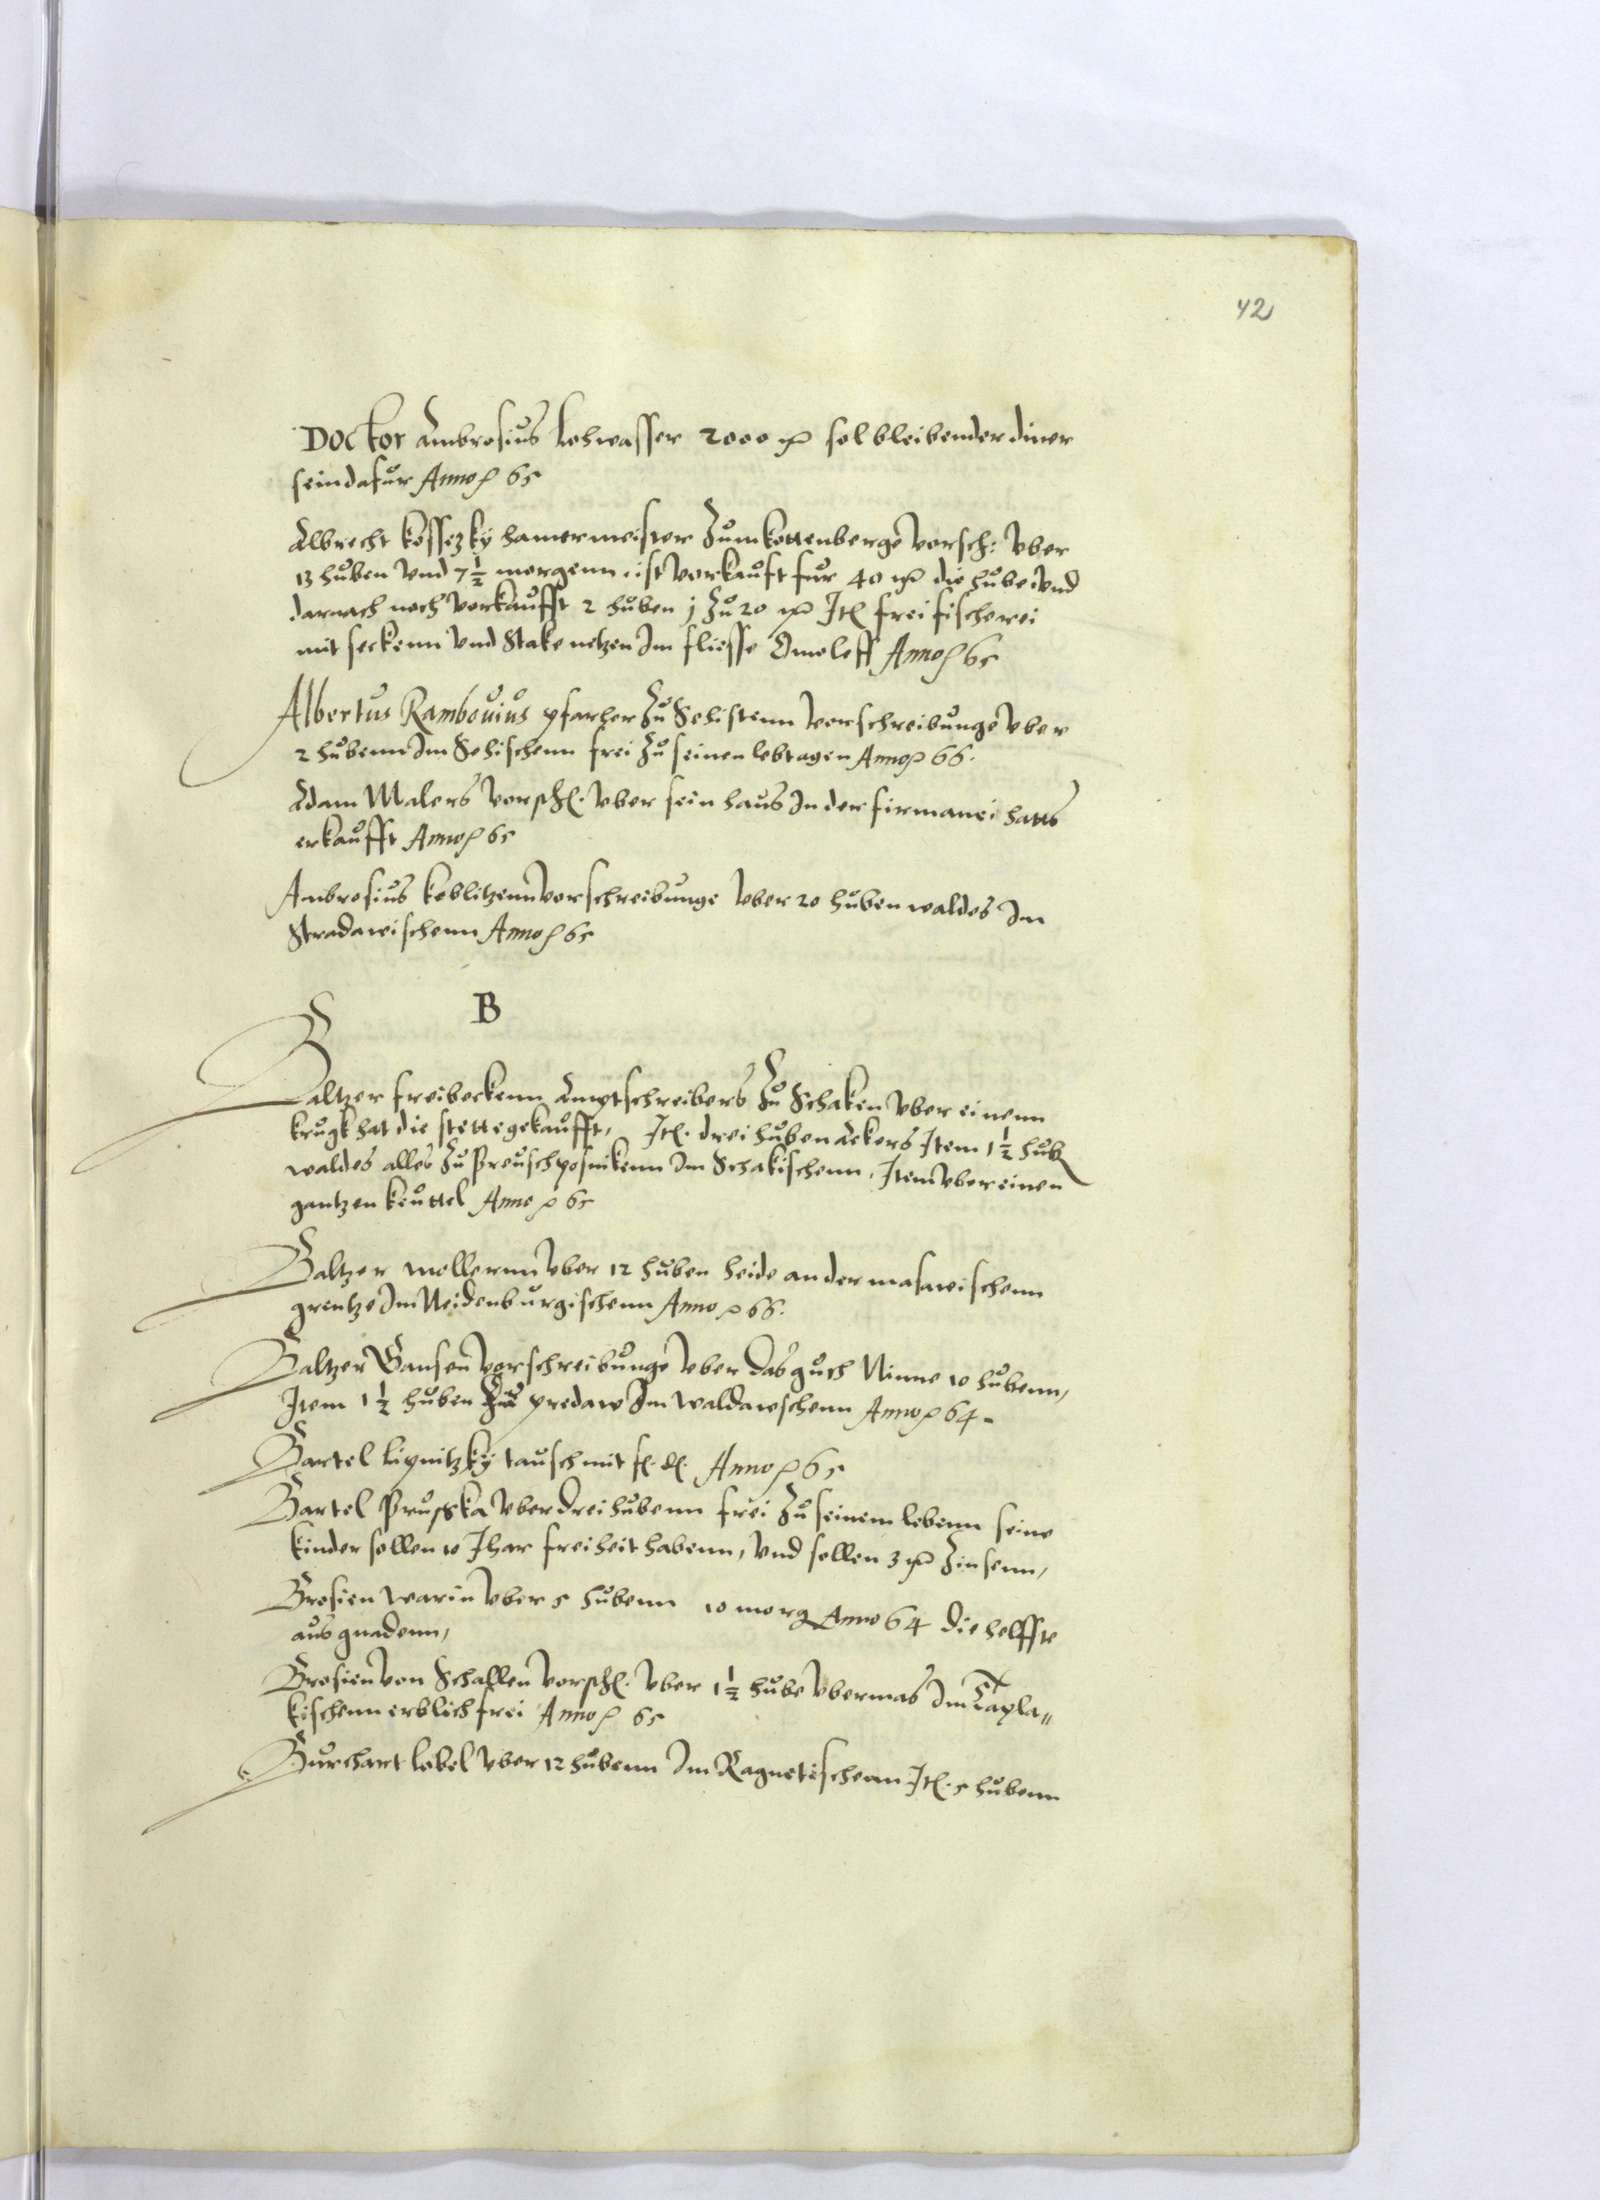 42
Doctor Ambrosius Lobwasser 2000 mr sol bleibender diner
sein dafur Anno 65
Albrecht Kossezky hamermeister Zum kottenberge Vorsch: Vber
13 huben Vnd 7½ morgenn ist Vorkauft fur 40 mr die hube Vnd
darnach noch Vorkaufft 2 huben j Zu 20 mr It. frei fischerei
mit seckenn Vnd Stake netzen Im fliesse Omoleff Anno 65
Albertus Rambouius pfarher Zu Sehistenn Vorschreibunge Vber
2 hubenn Im Sehischenn frei Zu seinen lebtagen Anno 66.
Adam Malers Vorsch. Vber sein haus In der firmanei hatts
erkaufft Anno 65
Ambrosius koblitzenn Vorschreibunge Vber 20 huben waldes Im
Stradawischenn Anno 65
B
Baltzer freibeckenn Amptschreibers Zu Schaken Vber einenn
krugk hat die stette gekaufft, It. drei huben Ackers Item 1½ hub
waldes alles Zu Preuschposnikenn Im Schakischenn, Item Vber einen
gantzen keuttel Anno 65
Baltzer mollernn Vber 12 huben heide an der masawischenn
grentze Im Neidenburgischenn Anno 66.
Baltzer Gansen Vorschreibunge Vber das guth Ninne 10 hubenn,
Item 1½ huben Zu predaw Im waldawschenn Anno 64.
Bartel Lipnitzky tausch mit f. d. Anno 65
Bartel Prusska Vber drei hubenn frei Zu seinem lebenn seine
kinder sollen 10 Jhar freiheit habenn, Vnd sollen 3 mr Zinsenn,
Brosien Warin Vber 5 hubenn 10 morg Anno 64 die helffte
aus gnadenn,
Brosien Von Schallen Vorsch. Vber 1½ hube Vbermas Im Tapla„
kischenn erblich frei Anno 65
Burchart Lobel Vber 12 hubenn Im Ragnetischenn It. 5 hubenn